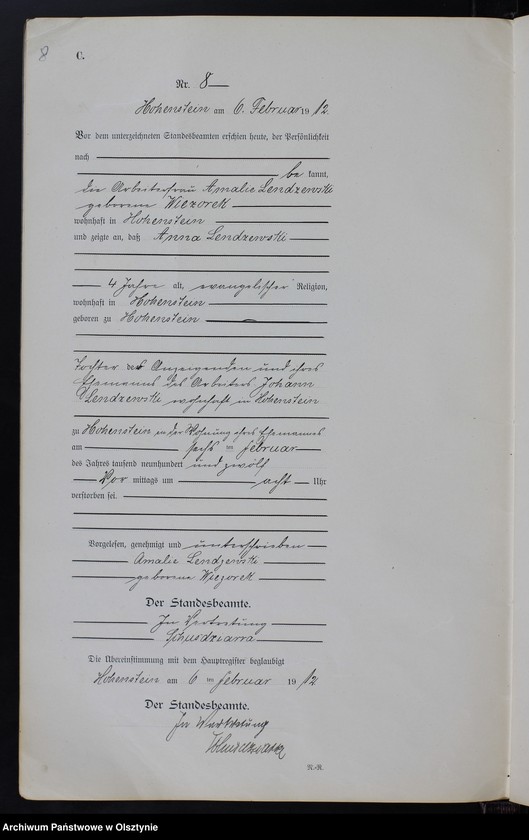 8
C.
Nr. 8
Hohenstein am 6. Februar 19 12.
Vor dem unterzeichneten Standesbeamten erschien heute, der Persönlichkeit
nach
be kannt,
die Arbeiterfrau Amalie Lendzewski
geborene Wiezorek
wohnhaft in Hohenstein
und zeigte an, daß Anna Lendzewski
4 Jahre alt, evangelischer Religion,
wohnhaft in Hohenstein
geboren zu Hohenstein
Tochter der Anzeigenden und ihres
Ehemannes des Arbeiters Johann
Lendzewski wohnhaft in Hohenstein
zu Hohenstein in der Wohnung ihres Ehemannes
am sechs ten Februar
des Jahres tausend neunhundert und zwölf
Vor mittags um acht Uhr
verstorben sei.
Vorgelesen, genehmigt und unterschrieben
Amalie Lendzewski
geborene Wiezorek
Der Standesbeamte.
In Vertretung
Die Übereinstimmung mit dem Hauptregister beglaubigt
Hohenstein am 6 ten Februar 19 12.
Der Standesbeamte.
In Vertretung
N.-R.
Archiwum Państwowe w Olsztynie